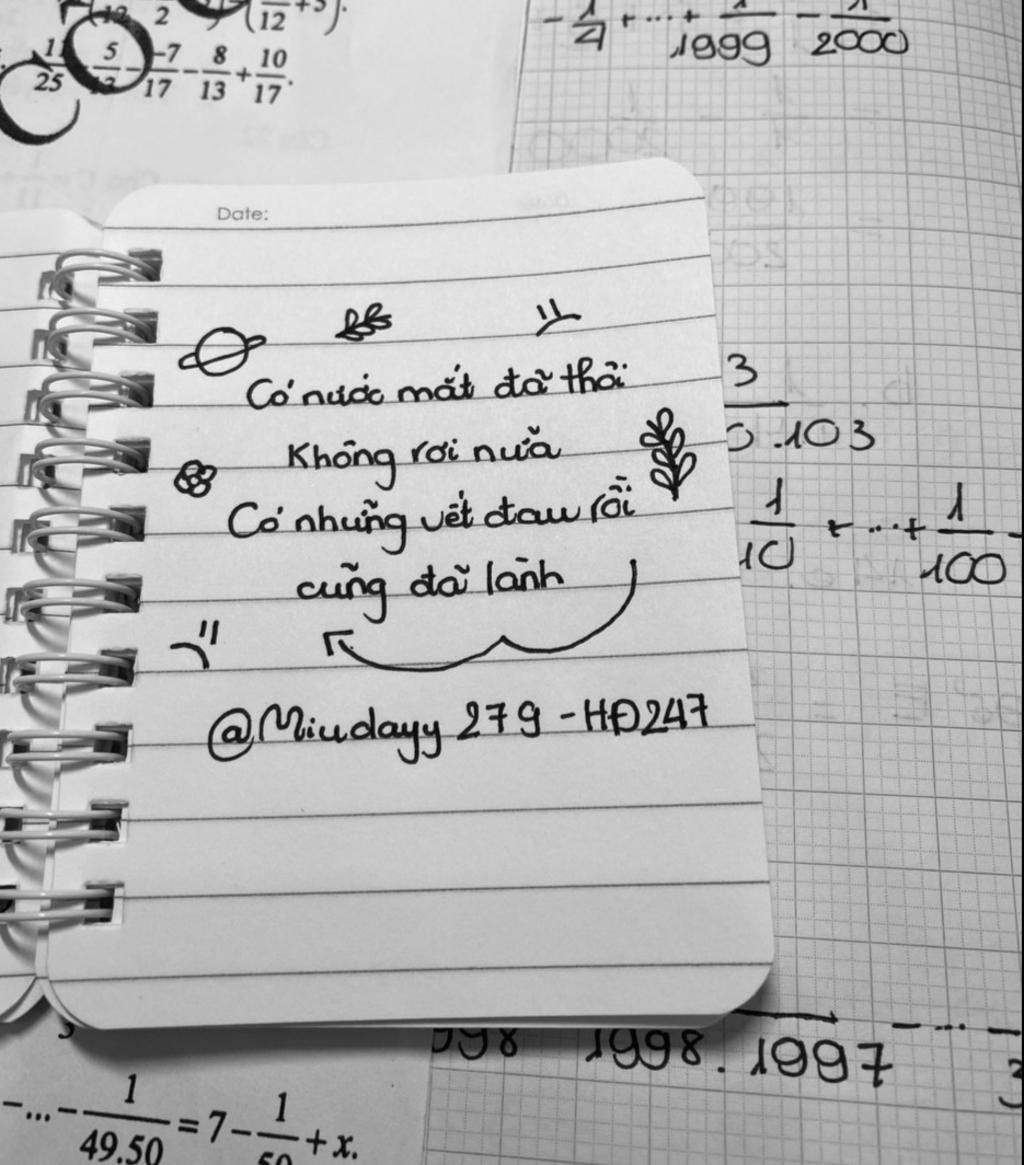 12 + 5).
25 5 -7/17 - 8/13 + 10/17.
- 1/4 + ... + 1/1999 - 1/2000
Date:
Có nước mắt đã thôi
Không rơi nữa
Có những vết đau rồi
cũng đã lành
@Miudayy 279 - HĐ247
3
.103
1/10 + ... + 1/100
1998 . 1997 - ... -
- ... - 1/49.50 = 7 - 1/50 + x.